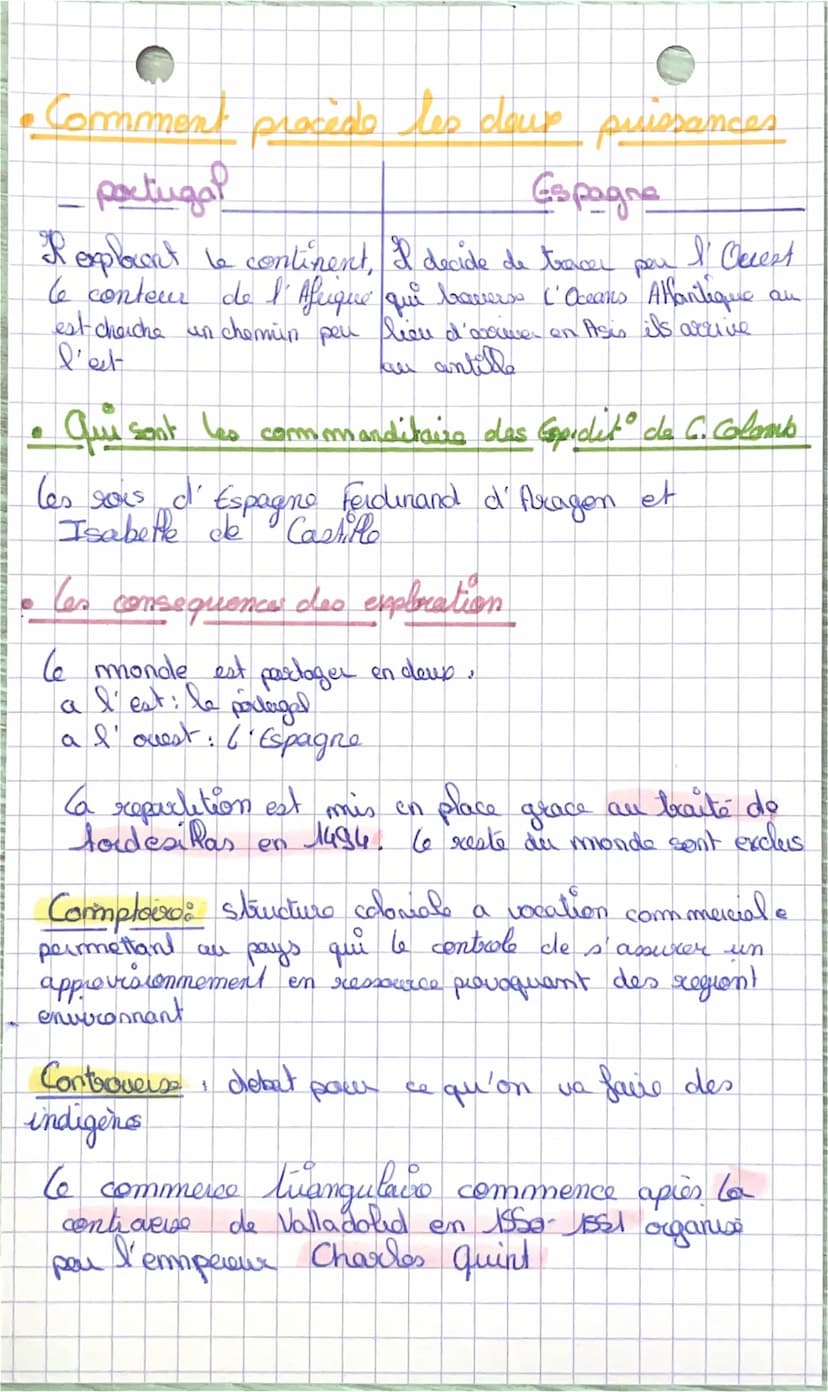 • Comment procède les deux puissances
_ portugal
Espagne
Il explorant le continent,
le conteur de l'Afrique
est cherche un chemin peu
l'est
Il decide de tracer peu l'Ouest
qui traverse l'Oceans Atlantique au
lieu d'arriver en Asis ils arrive
au antille
• Qui sont les commanditaire des Expedit° de C. Colomb
les rois d'Espagne Ferdinand d'Aragon et
Isabelle de Castille
• les consequences des exploration
le monde est partager en deux :
a l'est : le portugal
a l'ouest : l'Espagne
La repartition est mis en place grace au traité de
tordesillas en 1494. le reste du monde sont exclus
Comptoire : structure coloniale a vocation commerciale
permettant au pays qui le controle de s'assurer un
approvisionnement en ressource provoquant des regiont
environnant
Controverse : debat pour ce qu'on va faire des
indigènes
le commerce triangulaire commence après la
controverse de Valladolid en 1550-1551 organisé
peu l'empereur Charles Quint